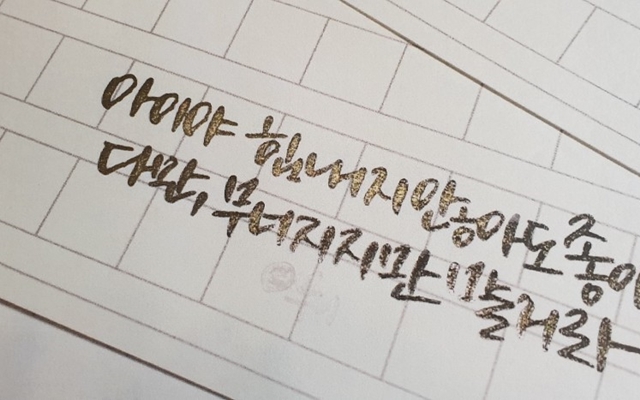 아이야 힘내지않아도 좋아
다만, 무너지지만 말거라